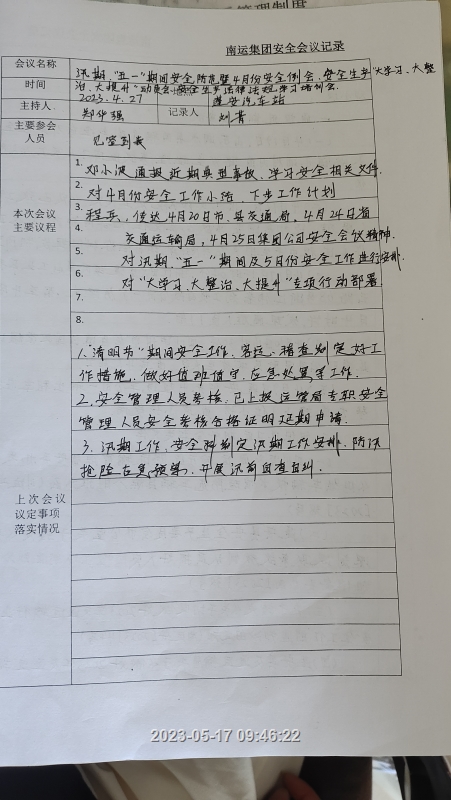 管理制度
南运集团安全会议记录
会议名称
汛期、"五一"期间安全防范暨4月份安全例会、安全生产"大学习、大整
治、大提升"动员会、安全生产法律法规学习培训会.
时间
2023.4.27
蓬安汽车站
主持人
郑华强
记录人
刘菁
主要参会
人员
见签到表
本次会议
主要议程
1. 邓小波通报近期典型事故、学习安全相关文件.
2. 对4月份安全工作小结、下步工作计划
3. 程兵,传达4月20日市、县交通局,4月24日省
4. 交通运输局,4月25日集团公司安全会议精神.
5. 对汛期、"五一"期间及5月份安全工作进行安排.
6. 对"大学习、大整治、大提升"专项行动部署
7.
8.
上次会议
议定事项
落实情况
1. "清明节"期间安全工作、客运、稽查制定好工
作措施、做好值班值守、应急处置等工作.
2. 安全管理人员考核、已上报运管局专职安全
管理人员安全考核合格证明延期申请.
3. 汛期工作、安全科制定汛期工作安排、防汛
抢险应急预案、开展汛前自查自纠.
2023-05-17 09:46:22